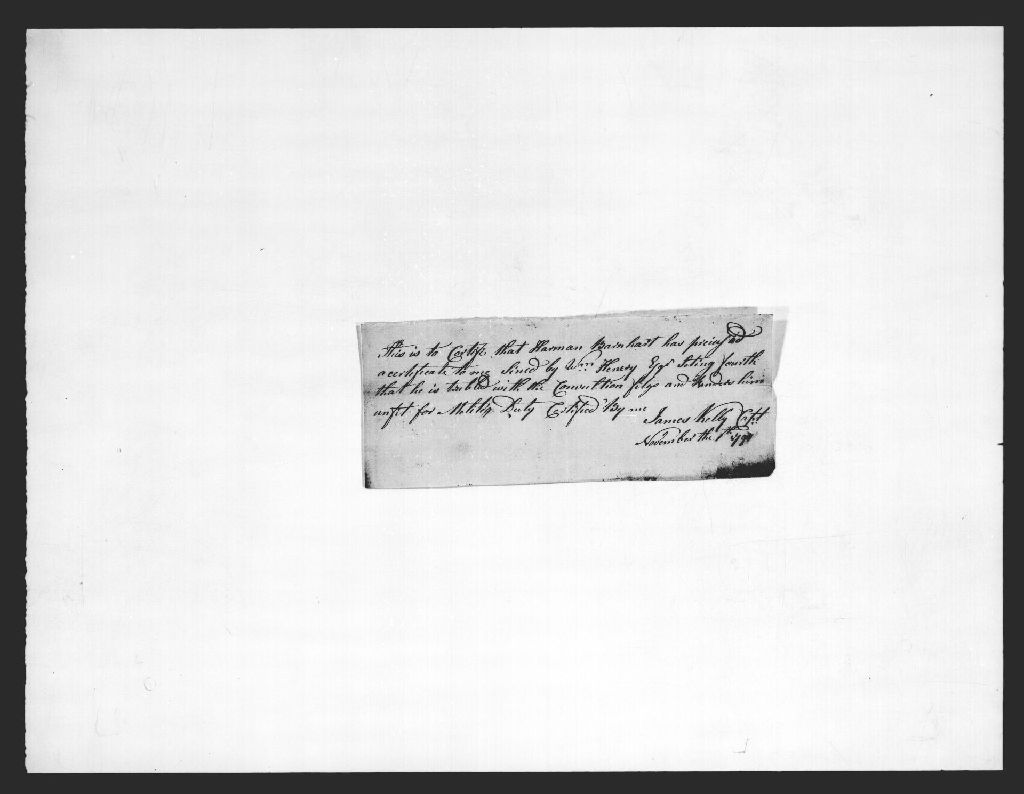 This is to Certify that Harman Barnhart has
acertificate to me Sined by Wm Henery Esqr Seting fourth
that he is trubled with the Convultion fitys and Randers him
unfit for Militia Duty Certified By me
James Kelly Capt
November the